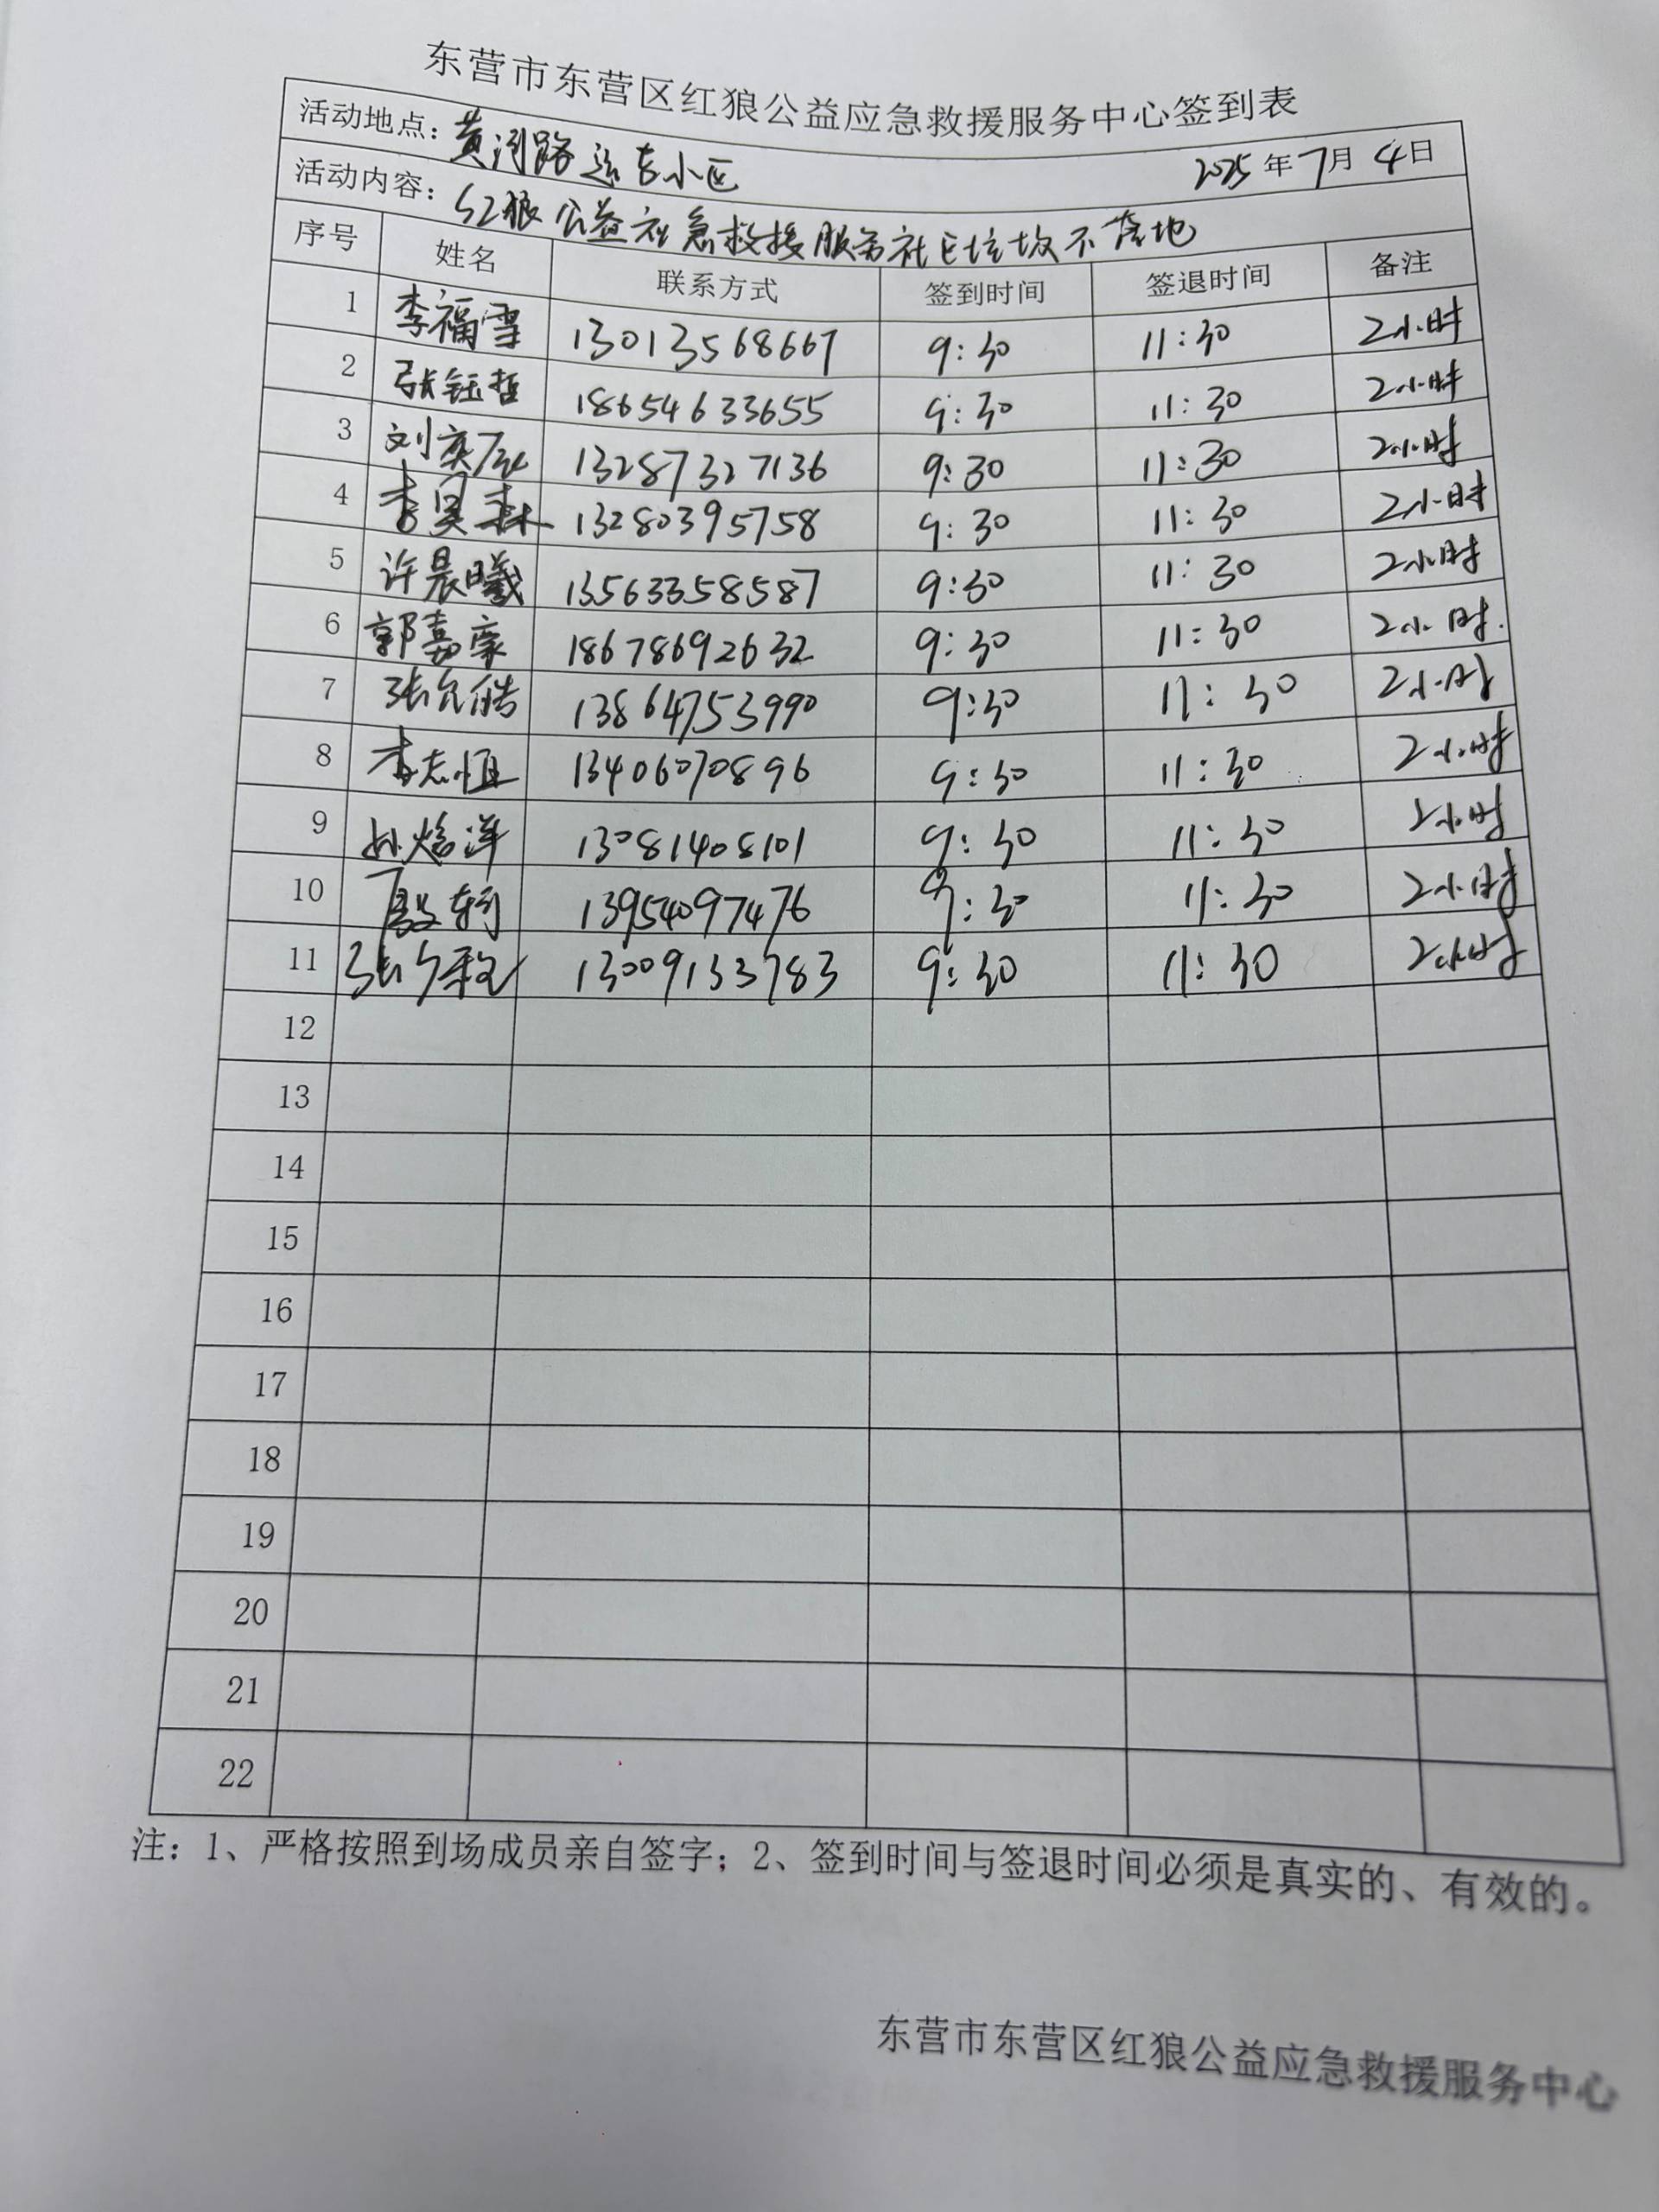 东营市东营区红狼公益应急救援服务中心签到表
活动地点：黄河路 小区 2025年7月4日
活动内容：红狼公益应急救援服务社区垃圾不落地
序号 姓名 联系方式 签到时间 签退时间 备注
1 李福雪 13013568667 9:30 11:30 2小时
2 张钰哲 18654633655 9:30 11:30 2小时
3 刘奕 13287327136 9:30 11:30 2小时
4 李昊霖 13280395758 9:30 11:30 2小时
5 许晨曦 13563358587 9:30 11:30 2小时
6 郭嘉豪 18678692632 9:30 11:30 2小时.
7 张允皓 13864753990 9:30 11:30 2小时
8 李志恒 13406070896 9:30 11:30 2小时
9 孙焓洋 13081408101 9:30 11:30 2小时
10 殷轲 13954097476 9:30 11:30 2小时
11 张 13009133783 9:30 11:30 2小时
12
13
14
15
16
17
18
19
20
21
22
注：1、严格按照到场成员亲自签字；2、签到时间与签退时间必须是真实的、有效的。
东营市东营区红狼公益应急救援服务中心